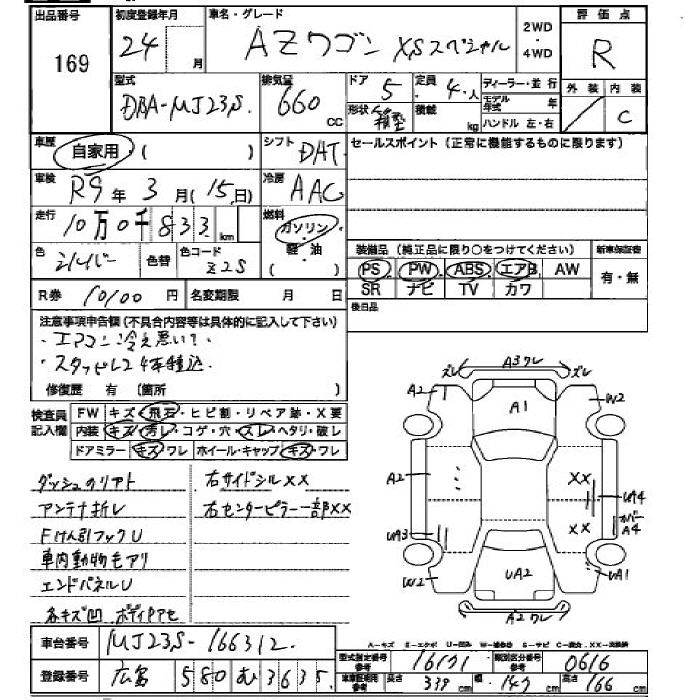 出品番号 169
初度登録年月 24年 月
車名・グレード AZワゴン XSスペシャル
2WD
4WD
評価点 R
外装 内装 C
型式 DBA-MJ23S
排気量 660 CC
ドア 5
定員 4人
形状 箱型
積載 kg
ディーラー・並行
モデル年式 年
ハンドル 左・右
車歴 自家用 ( )
シフト DAT
セールスポイント (正常に機能するものに限ります)
車検 R9年 3月 (15日)
冷房 AAC
走行 10万0千833 km
燃料 ガソリン・軽油 ( )
色 シルバー 色替
色コード Z2S
装備品 (純正品に限り○をつけてください) 新車保証書
PS PW ABS エアB AW 有・無
SR ナビ TV カワ
R券 10100円 名変期限 月 日
後日品
注意事項申告欄 (不具合内容等は具体的に記入して下さい)
・エアコン冷え悪いて
・スタッドレス4本積込
修復歴 有 (箇所 )
検査員記入欄
FW キズ・飛石・ヒビ割・リペア跡・X要
内装 キズ・汚レ・コゲ・穴・スレ・ヘタリ・破レ
ドアミラー キズ・ワレ ホイール・キャップ キズ・ワレ
ダッシュのリアト 右サイドシルXX
アンテナ折レ 右センターピラー一部XX
Fけん引フックU
車内動物モアリ
エンドパネルU
各キズ凹 ボディPアセ
ズレ A3ワレ ズレ
A2 A1 W2
A2 XX UA4
UA3 XX カバーA4
W2 UA2 UA1
A2ワレ
A-キズ E-エクボ U-凹み W-補修跡 S-サビ C-腐食 XX-交換済
車台番号 MJ23S-166312
型式指定番号 16171
類別区分番号 0616
登録番号 広島 580 む 3635
車庫証明用参考 長さ 339 cm 幅 147 cm 高さ 166 cm